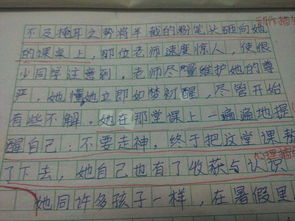 不及掩耳之势将半截的粉笔头砸向她
的课桌上，那位老师速度惊人，使很
少同学注意到，老师尽量维护她的尊
严，她懂她立即如梦初醒，尽管开始
有些不解，她在那堂课上一遍遍地提
醒自己：不要走神，终于把这堂课
了下去，她自己也有了收获与认识
她同许多孩子一样，在暑假里